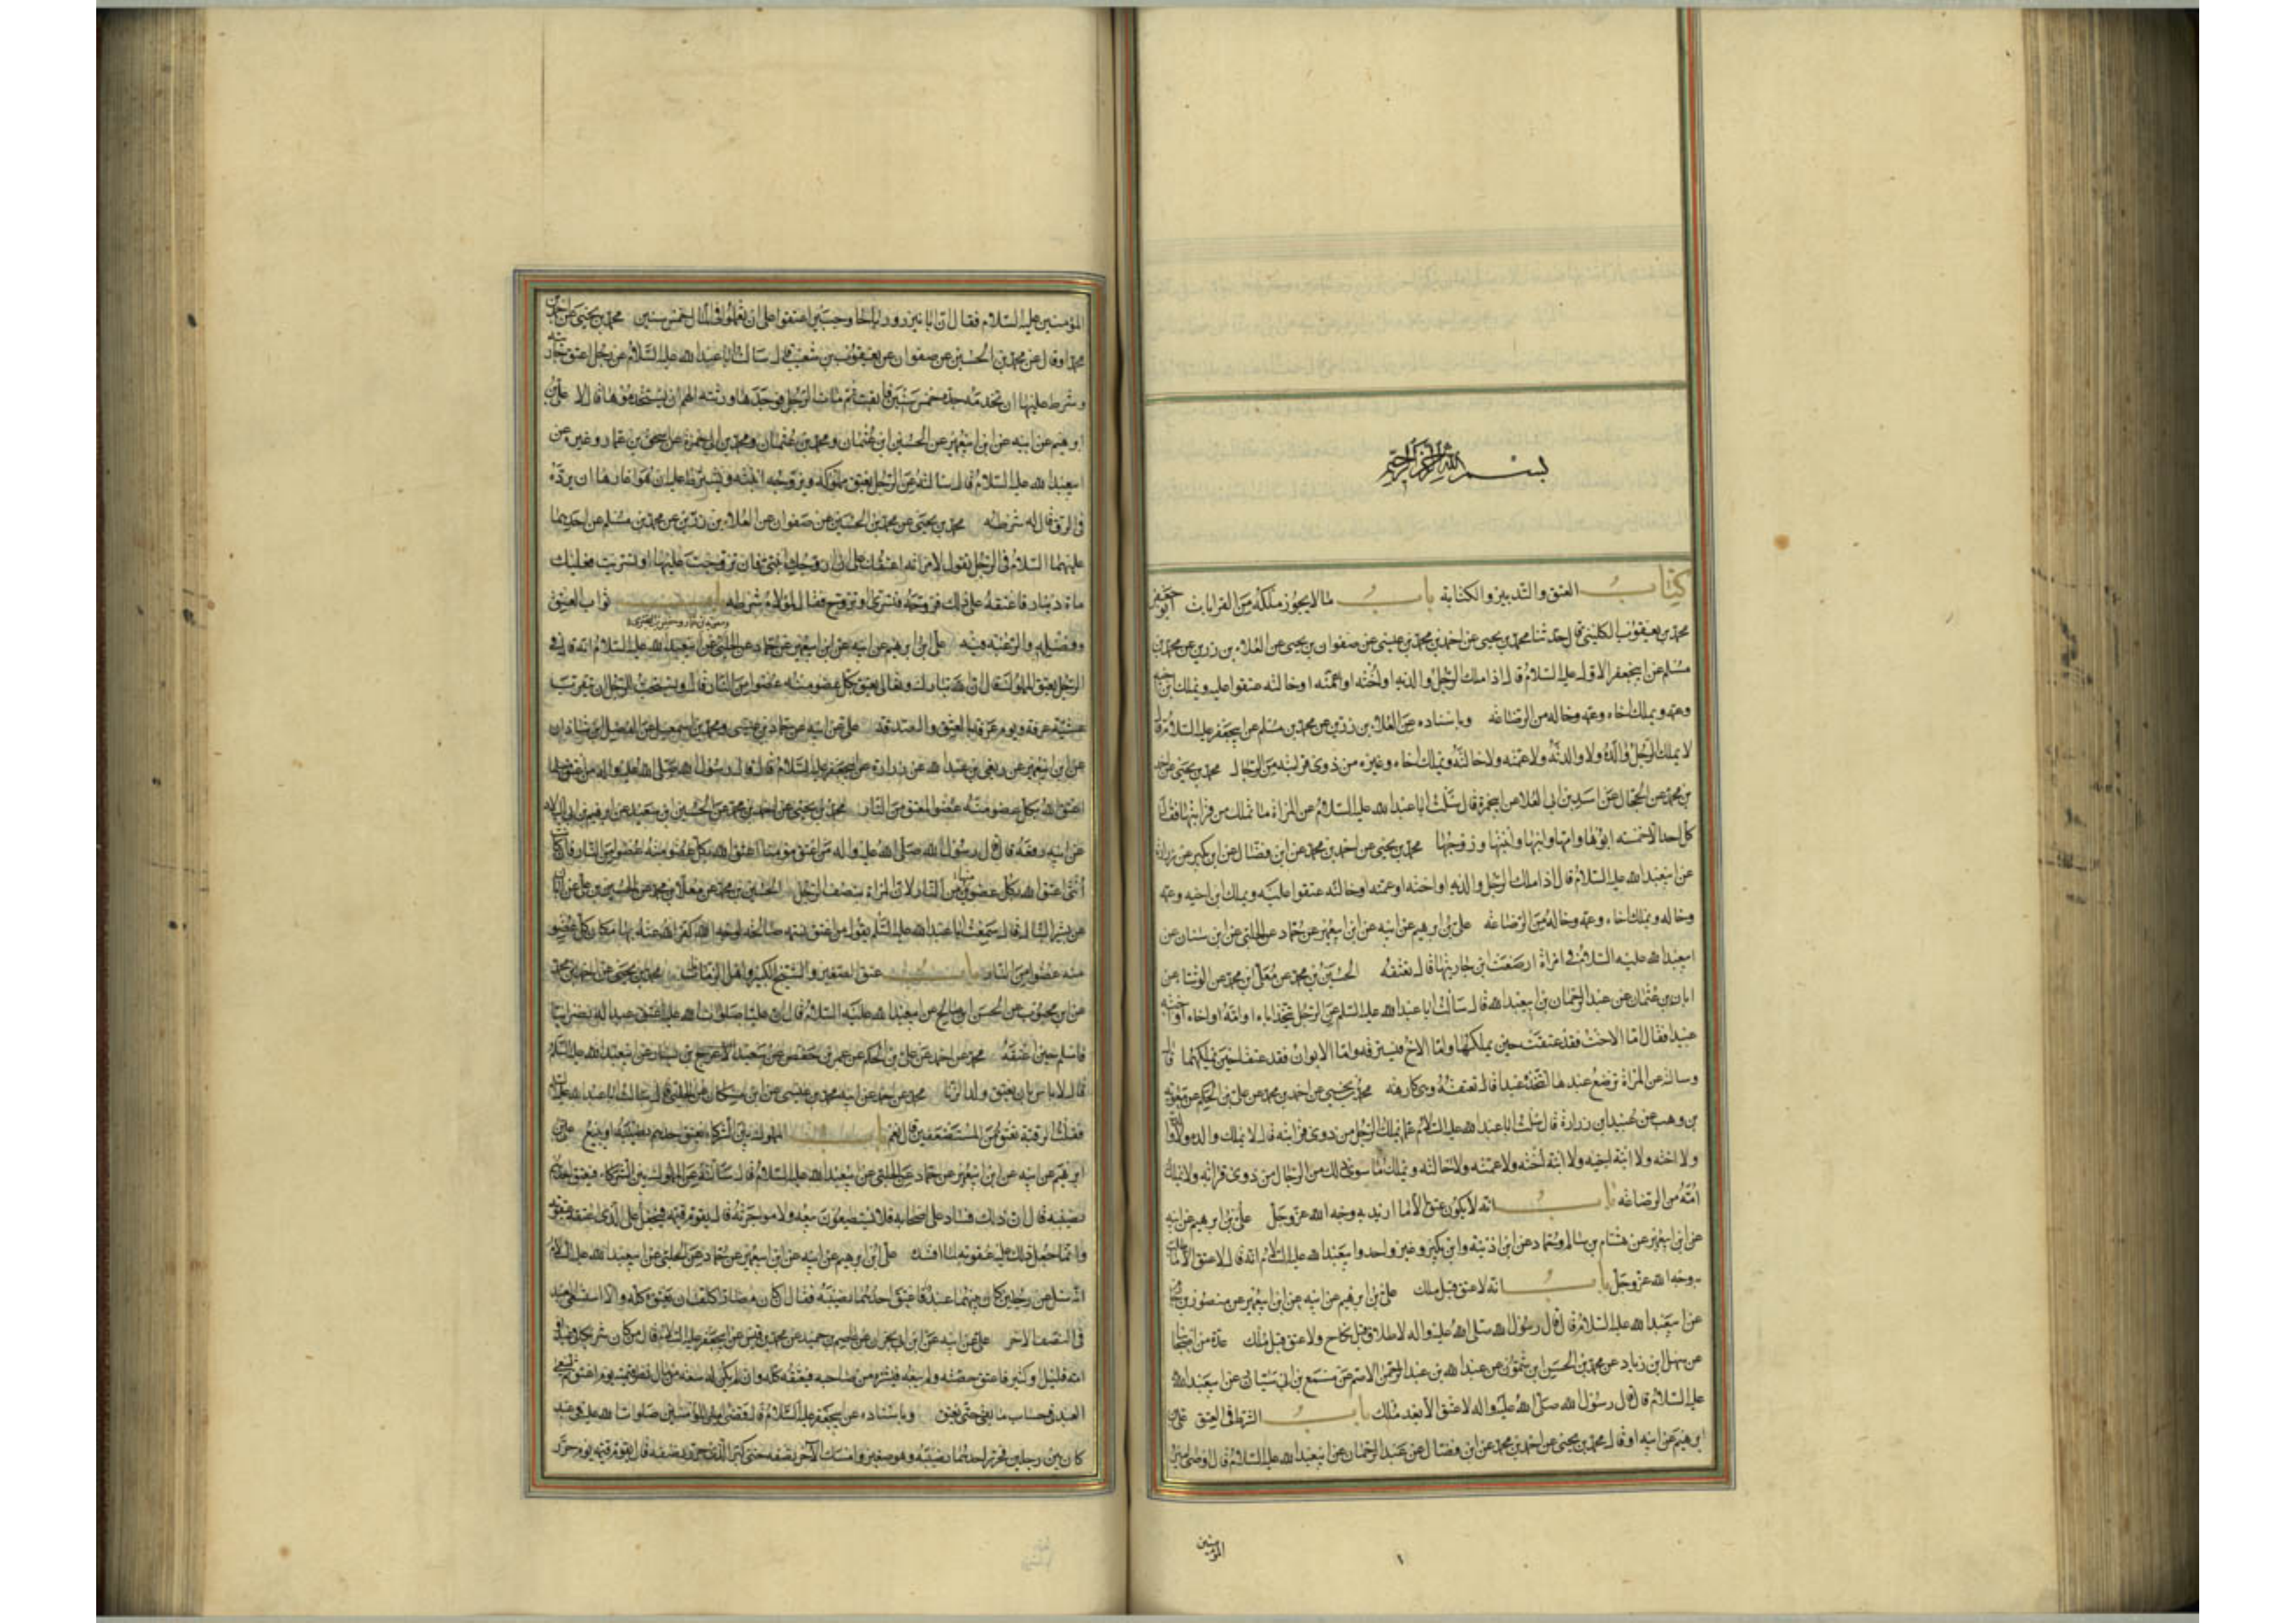 بسم الله الرحمن الرحيم
كتاب العتق والتدبير والكتابة باب ما لا يجوز ملكه من القرابات ابو جعفر
محمد بن يعقوب الكليني قال حدثنا محمد بن يحيى عن احمد بن محمد بن عيسى عن صفوان بن يحيى عن العلاء بن رزين عن محمد بن
مسلم عن ابيجعفر الاول عليه السلام قال اذا ملك الرجل والديه او اخته او عمته او خالته عتقوا عليه ويملك ابن اخيه
وعمه ويملك اخاه وعمه وخاله من الرضاعة وباسناده عن العلاء بن رزين عن محمد بن مسلم عن ابيجعفر عليه السلام قال
لا يملك الرجل والده ولا والدته ولا عمته ولا خالته ويملك اخاه وغيره من ذوى قرابته من الرجال محمد بن يحيى عن احمد
بن محمد عن الحجال عن اسد بن ابي العلا عن ابيحمزة قال سئلت ابا عبدا لله عليه السلام عن المراة ما تملك من قرابتها فقال
كل احد الا خمسه ابوها وامها وابنها وابنتها وزوجها محمد بن يحيى عن احمد بن محمد عن ابن فضال عن ابن بكير عن زرارة
عن ابيعبدا لله عليه السلام قال اذا ملك الرجل والديه او اخته او عمته او خالته عتقوا عليه ويملك ابن اخيه وعمه
وخاله ويملك اخاه وعمه وخاله من الرضاعه على بن ابرهيم عن ابيه عن ابن ابيعمير عن حماد عن الحلبي عن ابن سنان عن
ابيعبدا لله عليه السلام في امراة ارضعت ابن جاريتها قال تعتقه الحسين بن محمد عن معلى بن محمد عن الوشا عن
ابان بن عثمان عن عبد الرحمان بن ابيعبدا لله قال سالت ابا عبدا لله عليه السلم عن الرجل يتخذ اباه او امه او اخاه او اخته
عبيدا فقال اما الاخت فقد عتقت حين يملكها واما الاخ فيسترقه واما الابوان فقد عتقا حين يملكهما قال
وسالته عن المراة ترضع عبدها اتتخذه عبدا قال تعتقه وهى كارهه محمد بن يحيى عن احمد بن محمد عن على بن الحكم عن معوية
بن وهب عن عبيد ابن زرارة قال سئلت ابا عبدا لله عليه السلام عما يملك الرجل من ذوى قرابته قال لا يملك والده ولا والدته
ولا اخته ولا ابنة اخيه ولا ابنة اخته ولا عمته ولا خالته ويملك ما سوى ذلك من الرجال من ذوى قرابته ولا يملك
امه من الرضاعه باب انه لا يكون عتق الا ما اريد به وجه الله عز وجل على بن ابرهيم عن ابيه
عن ابن ابيعمير عن هشام بن سالم وحماد عن ابن اذينه وابن بكير وغير واحد عن ابيعبدا لله عليه السلام انه قال لا عتق الا ما طلب
به وجه الله عز وجل باب انه لا عتق قبل ملك على بن ابرهيم عن ابيه عن ابن ابيعمير عن منصور بن حازم
عن ابيعبدا لله عليه السلام قال قال رسول الله صلى الله عليه واله لا طلاق قبل نكاح ولا عتق قبل ملك عدة من اصحابنا
عن سهل ابن زياد عن محمد بن الحسن ابن شمون عن عبدا لله بن عبد الرحمن الاصم عن مسمع بن ابي سيار عن ابيعبدا لله
عليه السلام قال قال رسول الله صلى الله عليه واله لا عتق الا بعد ملك باب الشرط في العتق على بن
ابرهيم عن ابيه او قال محمد بن يحيى عن احمد بن محمد عن ابن فضال عن عبد الرحمان عن ابيعبدا لله عليه السلام قال اوصى امير
المؤمنين
١
المؤمنين عليه السلام فقال ان ابا نيزر ورباحا وجبيرا اعتقوا على ان يعملوا في المال خمس سنين محمد بن يحيى عن احمد بن
محمد او قال عن محمد بن الحسين عن صفوان عن يعقوب بن شعيب قال سالت ابا عبدا لله عليه السلام عن رجل اعتق جاريته
وشرط عليها ان تخدمه خمس سنين فابقت ثم مات الرجل فوجدها ورثته الهم ان يستخدموها قال لا على بن
ابرهيم عن ابيه عن ابن ابيعمير عن الحسين ابن عثمان ومحمد بن ابي حمزة عن اسحق بن عمار وغيره عن
ابيعبدا لله عليه السلام قال سالته عن الرجل يعتق مملوكه ويزوجه ابنته ويشترط عليه ان هو اغارها ان يرده
في الرق قال له شرطه محمد بن يحيى عن محمد بن الحسين عن صفوان عن العلاء بن رزين عن محمد بن مسلم عن احدهما
عليهما السلام في الرجل يقول لامراته اعتقك على ان ازوجك ابنتى فان تزوجت عليها او تسريت فعليك
ماة دينار فاعتقه على ذلك فزوجه فتسرى او تزوج فقال لمولاه شرطه باب ثواب العتق
وفضله والرغبه فيه على بن ابرهيم عن ابيه عن ابن ابيعمير عن حماد عن الحلبي عن ابيعبدا لله عليه السلام انه قال في
الرجل يعتق المملوك قال ان الله تبارك وتعالى يعتق بكل عضو منه عضوا من النار قال ويستحب للرجل ان يتقرب
عشية عرفة ويوم عرفة بالعتق والصدقه على عن ابيه عن حماد بن عيسى ومحمد بن اسمعيل عن الفضل بن شاذان
عن ابن ابيعمير عن ربعى بن عبدا لله عن زرارة عن ابيجعفر عليه السلام قال قال رسول الله صلى الله عليه واله من اعتق مسلما
اعتق الله بكل عضو منه عضوا من النار محمد بن يحيى عن احمد بن محمد عن الحسين ابن سعيد عن ابرهيم بن ابي البلاد
عن ابيه رفعه قال قال رسول الله صلى الله عليه واله من اعتق مؤمنا اعتق الله بكل عضو منه عضوا من النار فان كانت
انثى اعتق الله بكل عضوين منها عضوا من النار لان المراة بنصف الرجل الحسين بن محمد عن معلى بن محمد عن الحسن بن على عن ابان
عن بشير النبال قال سمعت ابا عبدا لله عليه السلم يقول من اعتق نسمه صالحه لوجه الله كفر الله عنه بها مكان كل عضو
منه عضوا من النار باب عتق الصغير والشيخ الكبير واهل الزمانات محمد بن يحيى عن احمد بن محمد
عن ابن محبوب عن الحسن ابن صالح عن ابيعبدا لله عليه السلام قال ان عليا صلوات الله عليه اعتق عبدا له نصرانيا
فاسلم حين اعتقه محمد عن احمد عن على بن الحكم عن عمر بن حفص عن سعيد الاعرج بن يسار عن ابيعبدا لله عليه السلم
قال لا باس بان يعتق ولد الزنا
فقلت الرقبة تعتق من المستضعفين قال نعم باب المملوك بين الشركاء يعتق احدهم نصيبه او يبيع على بن
ابرهيم عن ابيه عن ابن ابيعمير عن حماد عن الحلبي عن ابيعبدا لله عليه السلام قال سالته عن المملوك بين الشركاء فيعتق احدهم
نصيبه قال ان ذلك فساد على اصحابه فلا يستطيعون بيعه ولا مواجرته قال يقوم قيمه فيجعل على الذى اعتقه عقوبه
وانما جعل ذلك عليه عقوبه لما افسد على ابن ابرهيم عن ابيه عن ابن ابيعمير عن حماد عن الحلبي عن ابيعبدا لله عليه السلام
انه سئل عن رجلين كان بينهما عبد فاعتق احدهما نصيبه فقال ان كان مضارا كلف ان يعتقه كله والا استسعى العبد
في النصف الاخر على عن ابيه عن ابن ابي نجران عن عاصم بن حميد عن محمد بن قيس عن ابيجعفر عليه السلام قال من كان شريكا في عبد او
امه قليل او كثير فاعتق حصته وله سعه فليشتره من صاحبه فيعتقه كله وان لم يكن له سعه من مال نظر قيمته يوم اعتق ثم يسعى
العبد في حساب ما بقى حتى يعتق وباسناده عن ابيجعفر عليه السلام قال قضى امير المؤمنين صلوات الله عليه في عبد
كان بين رجلين فحرر احدهما نصيبه وهو صغير وامسك الاخر نصفه حتى كبر الذى حرر نصفه قال يقوم قيمة يوم حرر